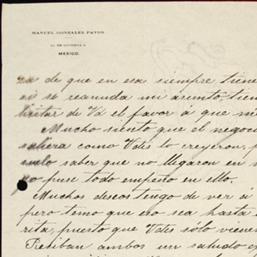 MANUEL GONZALEZ PAVON
MEXICO.
za de que en esa siempre tiene
si se reanuda mi asunto, tien
licitar de Vd el favor á que mi
Mucho siento que el negoc
saliera como Vdes lo creyeron, p
solo saber que no llegaron en
yo puse todo empeño en ello.
Muchos deseos tengo de ver á
pero temo que eso sea hasta
rita, puesto que Vdes sólo viene
Reciban ambos un saludo